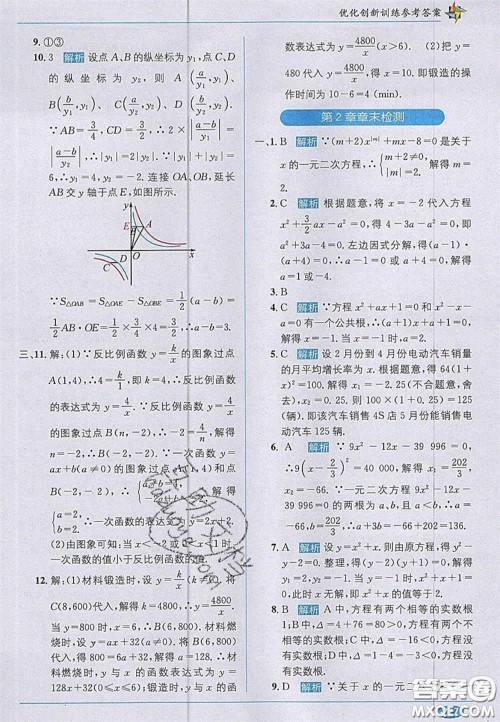 优化创新训练参考答案
9. ①③
10. 3 解析 设点 A、B 的纵坐标为 y₁,点 C、D
的纵坐标为 y₂,则点 A(a/y₁, y₁),点
B(b/y₁, y₁),点 C(a/y₂, y₂),点 D(b/y₂, y₂).
∵AB=3/4,CD=3/2,∴2×|(a-b)/y₁|=
|(a-b)/y₂|,∴|y₁|=2|y₂|.∵|y₁|+|y₂|
=6,∴y₁=4,y₂=-2.连接 OA、OB,延长
AB 交 y 轴于点 E,如图所示.
y
E
B
A
O
x
D
C
∵S△OAB=S△OAE-S△OBE=1/2(a-b)=
1/2AB·OE=1/2×3/4×4=3/2,∴a-b=
2S△OAB=3.
三、11. 解:(1)∵反比例函数 y=k/x 的图象过点
A(1,4),∴4=k/1,即 k=4,∴反比例函数
的表达式为 y=4/x.∵反比例函数 y=4/x 的
图象过点 B(n,-2),∴-2=4/n,解得
n=-2,∴B(-2,-2).∵一次函数 y=
ax+b(a≠0)的图象过点 A(1,4)和点
B(-2,-2),∴{a+b=4, -2a+b=-2,解得
{a=2, b=2.∴一次函数的表达式为 y=2x+2.
(2)由图象可知:当 x<-2或0<x<1时,
一次函数的值小于反比例函数的值.
12. 解:(1)材料锻造时,设 y=k/x(k≠0),将
C(8,600)代入,得 k=4800,∴y=4800/x.
当 y=800时,x=6,∴B(6,800).材料煅
烧时,设 y=ax+32(a≠0),将 B(6,800)代
入,得800=6a+32,解得 a=128,∴材料
煅烧时,y 与 x 的函数表达式为 y=
128x+32(0≤x≤6);锻造时 y 与 x 的函
数表达式为 y=4800/x(x>6).(2)把 y=
480代入 y=4800/x,得 x=10.即锻造的操
作时间为10-6=4(min).
第2章章末检测
一、1. B 解析 ∵(m+2)x^|m|+mx-8=0是关于
x 的一元二次方程,∴{|m|=2, m+2≠0,解得 m=
2.
2. C 解析 根据题意,将 x=-2代入方程
x²+3/2ax-a²=0,得4-3a-a²=0,即
a²+3a-4=0.左边因式分解,得(a-1)(a+
4)=0,∴a-1=0或 a+4=0,解得 a=1或
-4.
3. B
4. C 解析 ∵方程 x²+ax+1=0和 x²-x-a
=0有一个公共根,∴(a+1)x+a+1=0.
∵a+1≠0,∴x=-1,∴a=2.
5. C 解析 设2月份到4月份电动汽车销量
的月平均增长率为 x.根据题意,得64(1+x)²
=100,解得 x₁=-2.25(不合题意,舍
去),x₂=0.25=25%,∴100×(1+25%)=125
(辆).即该汽车销售4S店5月份能销售电
动汽车125辆.
6. A 解析 ∵9x²-12x-39 996=0,
∴9(x-2/3)²=40 000,∴x₁=202/3,
x₂=-66.∵一元二次方程9x²-12x-39
996=0的两根为 a、b,且 a<b,∴a=-66,
b=202/3,∴a+3b=-66+3×202/3=136.
7. A 解析 设 y=x²+x,则由原方程,得 y²-
y-2=0,整理,得(y-2)(y+1)=0,解得 y
=2或 y=-1(舍去),即 x²+x 的值等于2.
8. B 解析 A中,方程有两个相等的实数根;
B中,Δ=76=80>0,方程有两个不相等的
9. D 解析 ∵关于 x 的一元二次方程